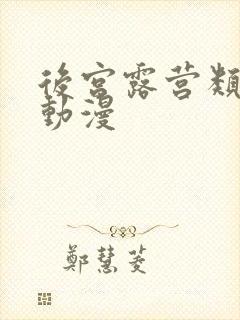 後宮露营類
動漫
鄭慧菱